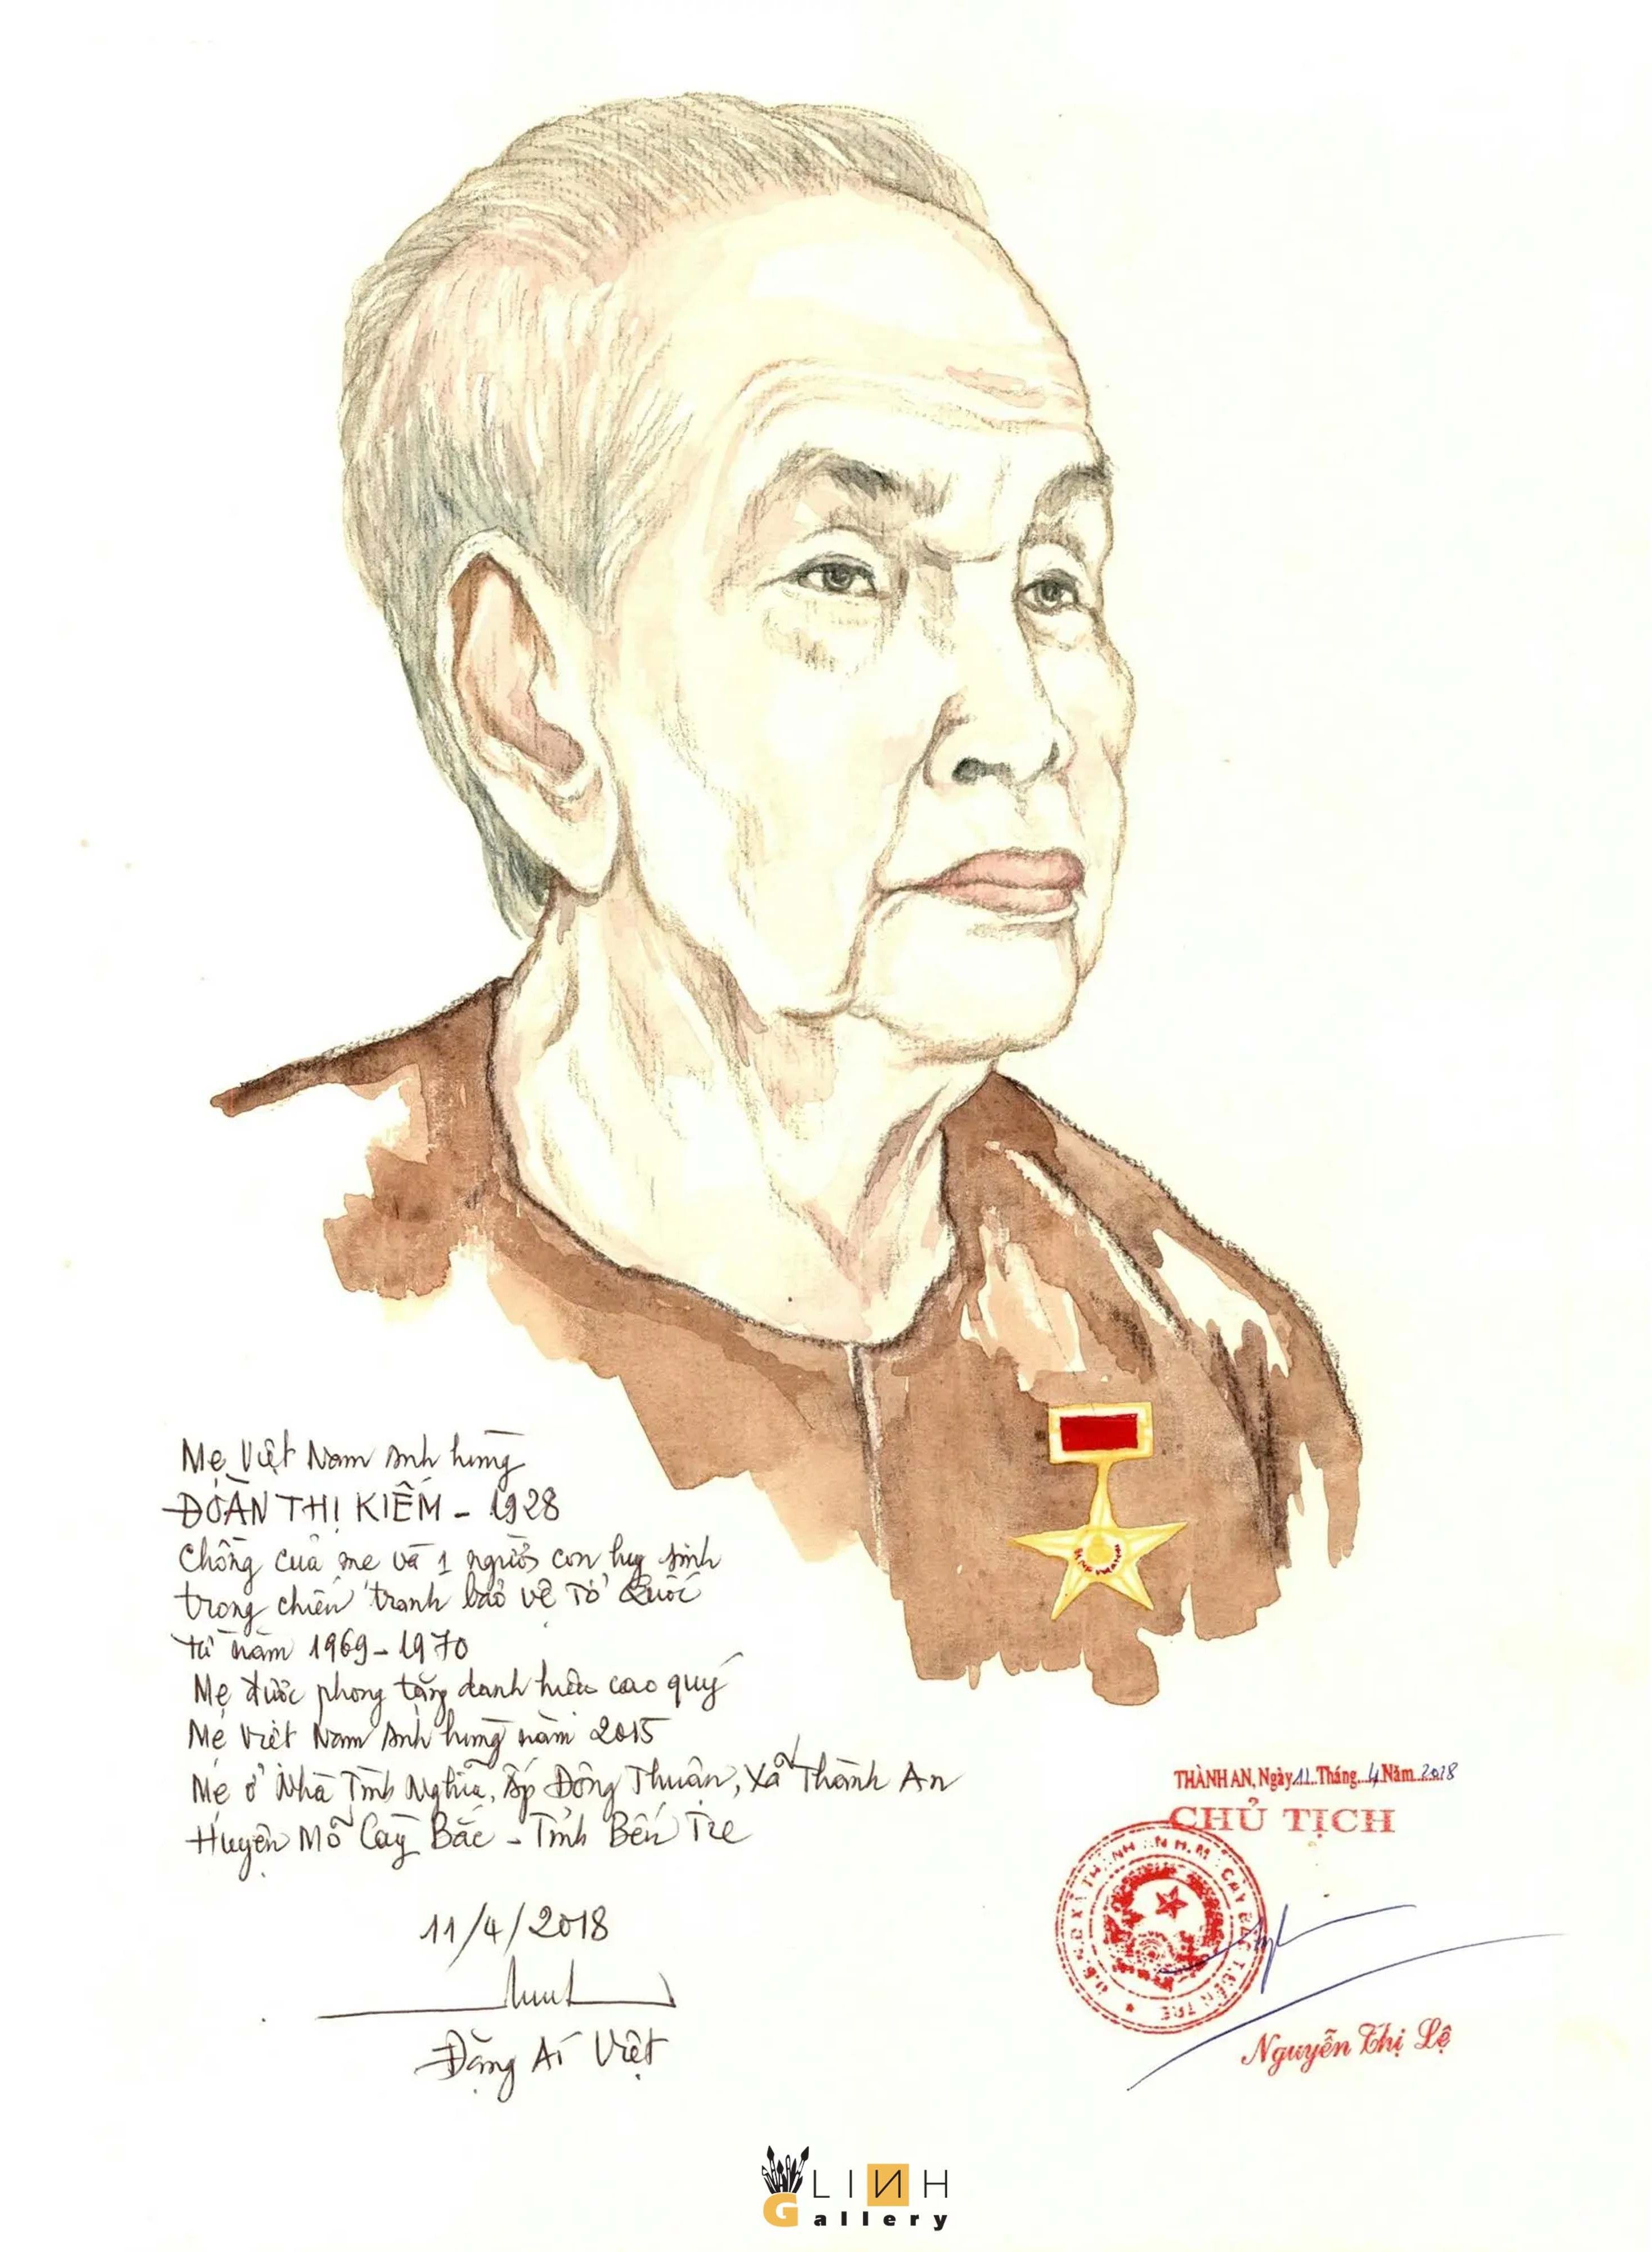 Mẹ Việt Nam Anh hùng
ĐOÀN THỊ KIẾM - 1928
Chồng của mẹ và 1 người con hy sinh
trong chiến tranh bảo vệ Tổ Quốc
từ năm 1969 - 1970
Mẹ được phong tặng danh hiệu cao quý
Mẹ Việt Nam Anh hùng năm 2015
Mẹ ở Nhà Tình Nghĩa, Ấp Đông Thuận, Xã Thành An
Huyện Mỏ Cày Bắc - Tỉnh Bến Tre
11/4/2018
Đặng Ái Việt
THÀNH AN, Ngày 11 Tháng 4 Năm 2018
CHỦ TỊCH
Nguyễn Thị Lệ
LINH
Gallery